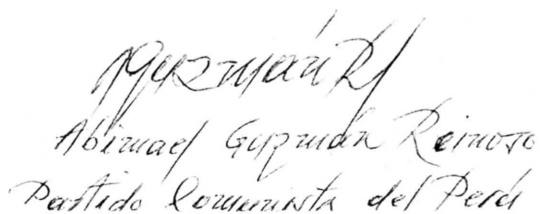 AGuzmánR
Abimael Guzmán Reinoso
Partido Comunista del Perú